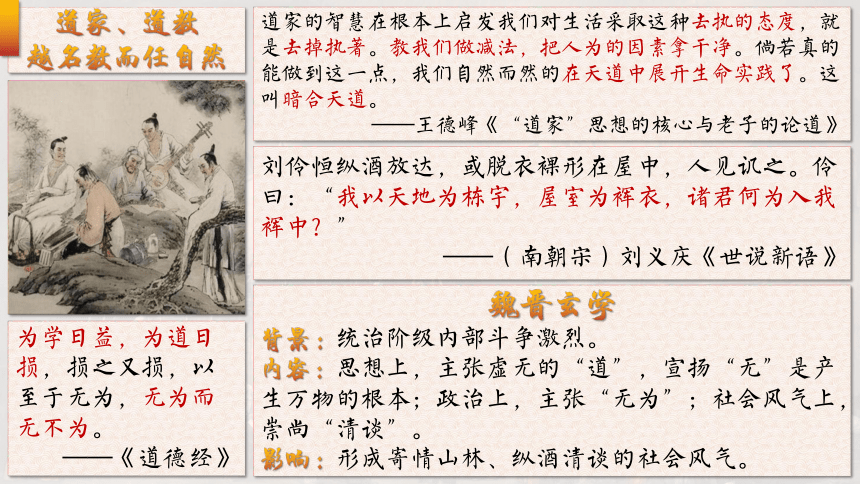 道家、道教
越名教而任自然
道家的智慧在根本上启发我们对生活采取这种去执的态度，就
是去掉执著。教我们做减法，把人为的因素拿干净。倘若真的
能做到这一点，我们自然而然的在天道中展开生命实践了。这
叫暗合天道。
——王德峰《“道家”思想的核心与老子的论道》
刘伶恒纵酒放达，或脱衣裸形在屋中，人见讥之。伶
曰：“我以天地为栋宇，屋室为裈衣，诸君何为入我
裈中？”
——（南朝宋）刘义庆《世说新语》
为学日益，为道日
损，损之又损，以
至于无为，无为而
无不为。
——《道德经》
魏晋玄学
背景：统治阶级内部斗争激烈。
内容：思想上，主张虚无的“道”，宣扬“无”是产
生万物的根本；政治上，主张“无为”；社会风气上，
崇尚“清谈”。
影响：形成寄情山林、纵酒清谈的社会风气。